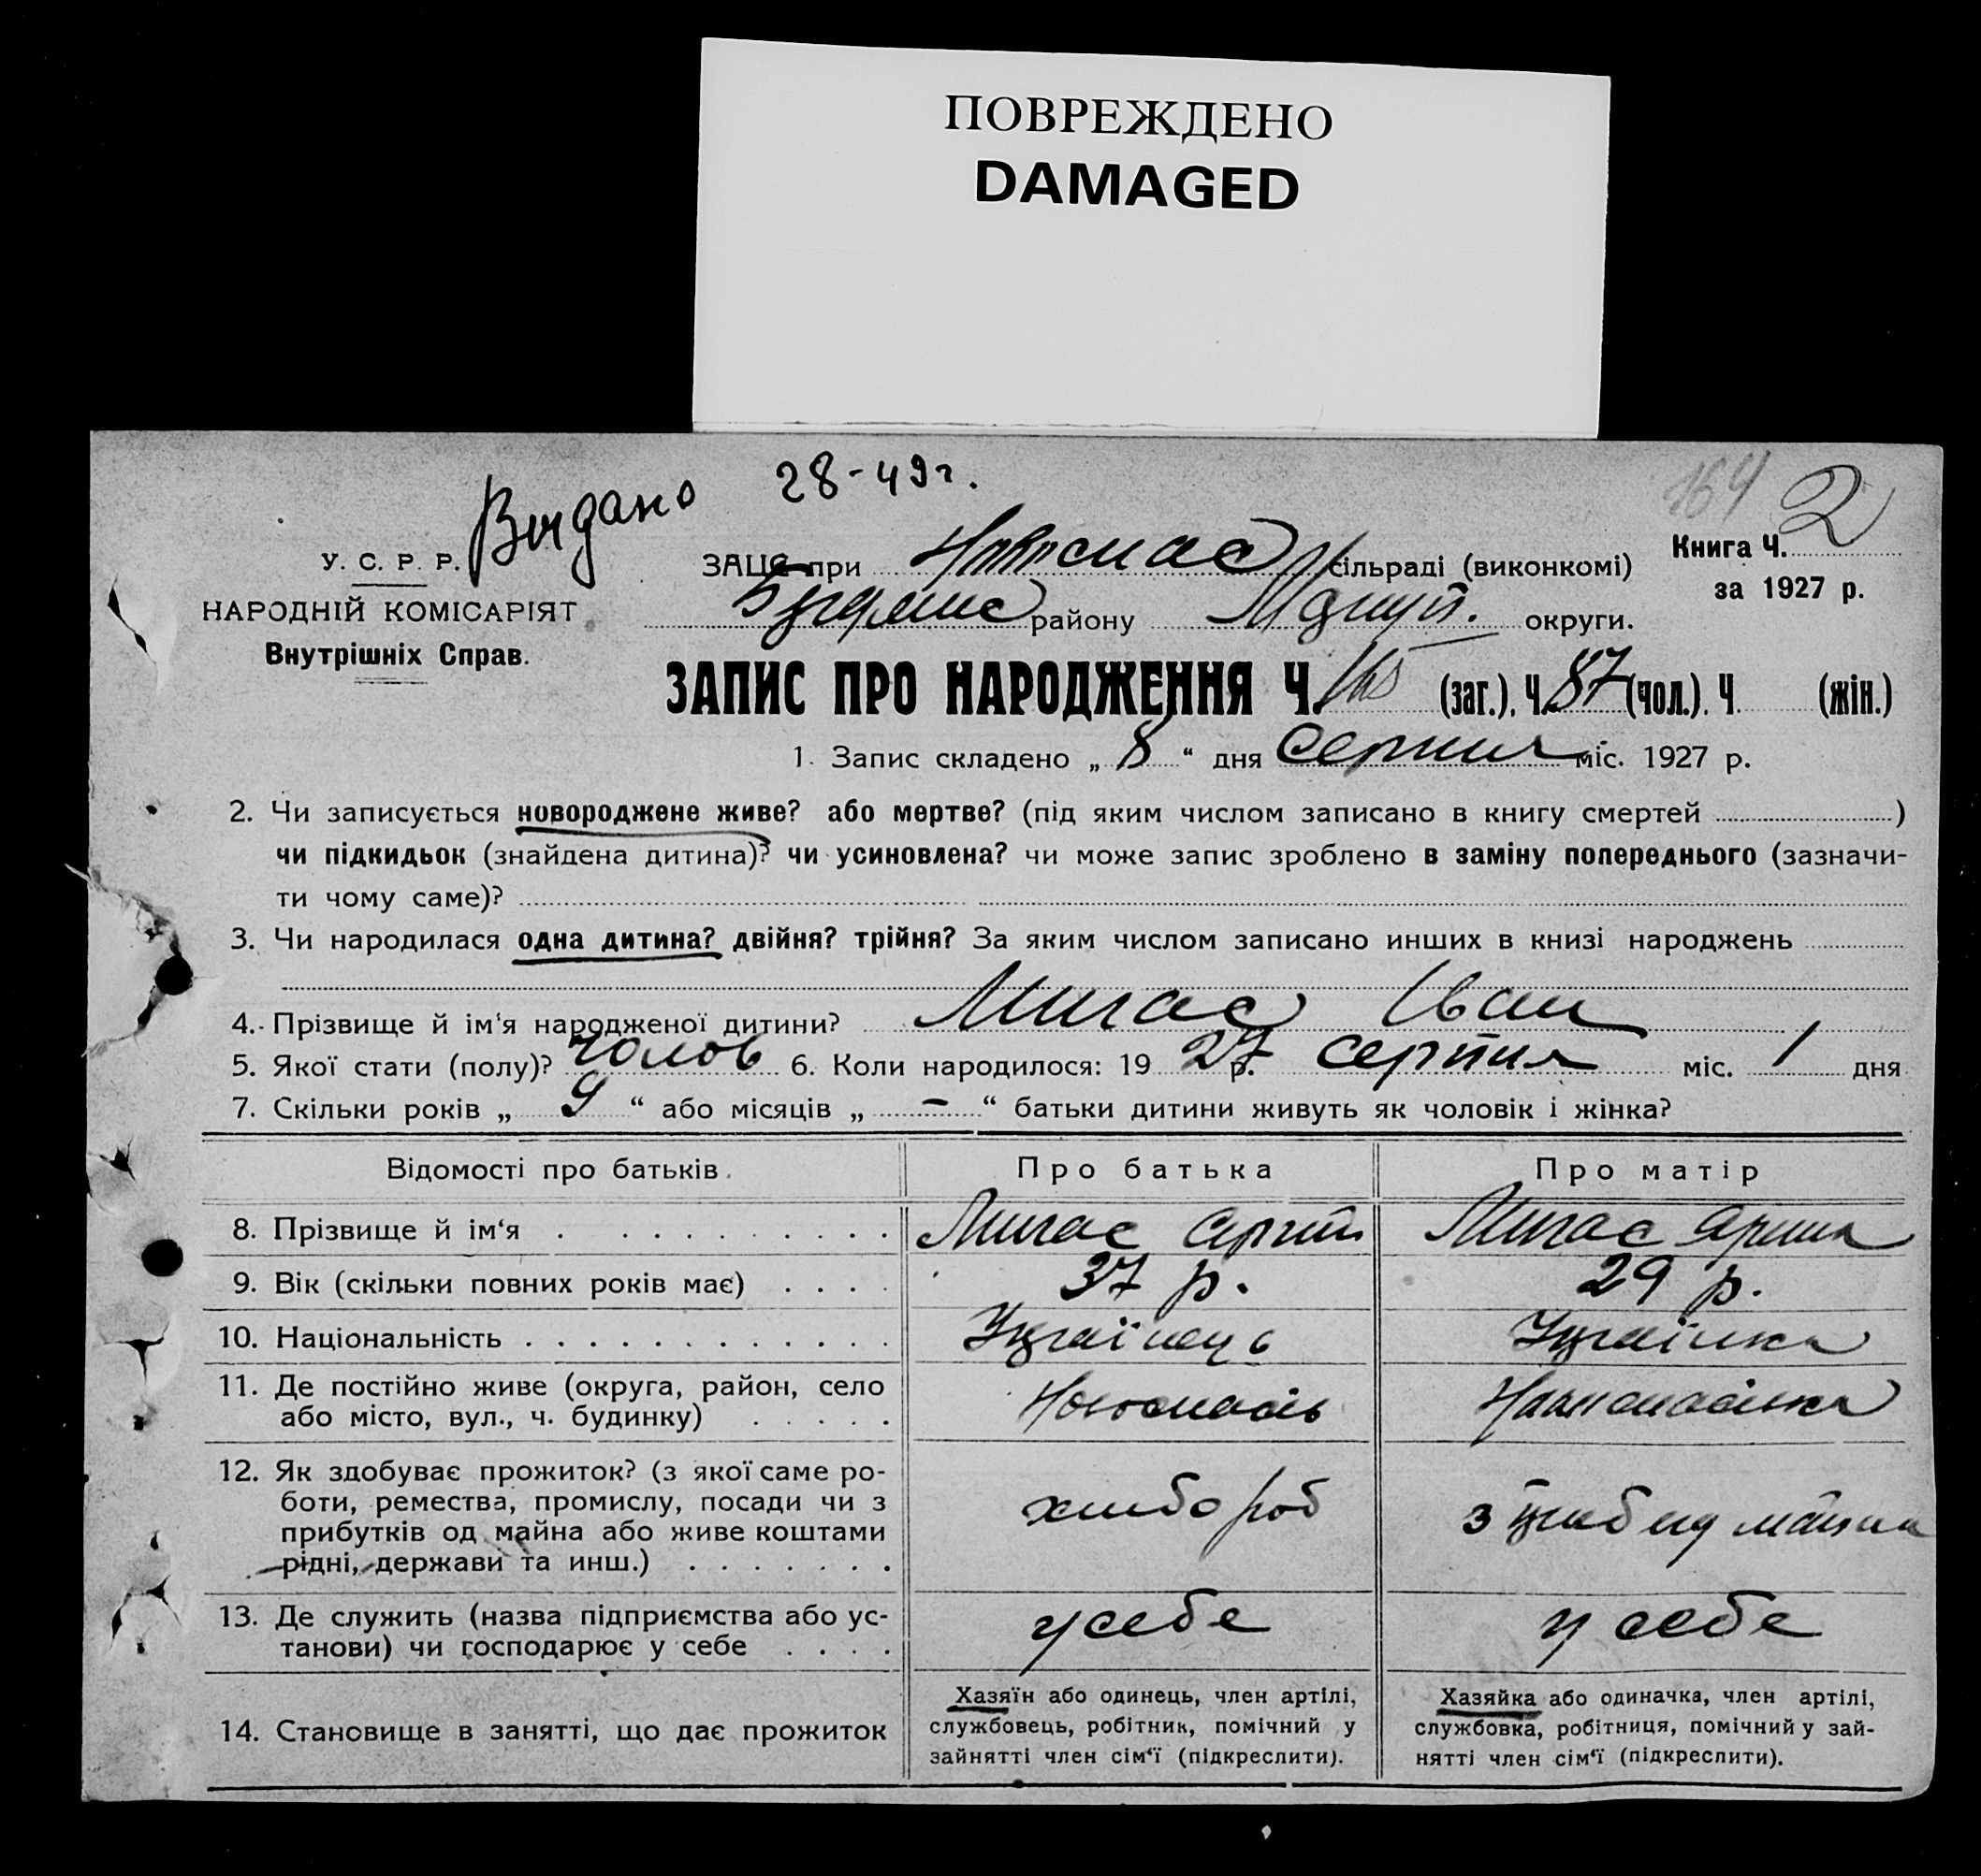 ПОВРЕЖДЕНО
DAMAGED
Видано 28-49г.
164 2
У. С. Р. Р.
НАРОДНІЙ КОМІСАРІЯТ
Внутрішніх Справ.
ЗАЦС при Новоспас сільраді (виконкомі)
району Маріуп. округи.
Книга Ч.
за 1927 р.
ЗАПИС ПРО НАРОДЖЕННЯ Ч. 165 (заг.). Ч. 87 (чол.). Ч. (жін.)
1. Запис складено „ 8 “ дня Серпня міс. 1927 р.
2. Чи записується новороджене живе? або мертве? (під яким числом записано в книгу смертей )
чи підкидьок (знайдена дитина)? чи усиновлена? чи може запис зроблено в заміну попереднього (зазначи-
ти чому саме)?
3. Чи народилася одна дитина? двійня? трійня? За яким числом записано инших в книзі народжень
4. Прізвище й ім'я народженої дитини? Мигас Іван
5. Якої стати (полу)? Чолов 6. Коли народилося: 19 27 р. серпня міс. 1 дня
7. Скільки років „ 9 “ або місяців „ - “ батьки дитини живуть як чоловік і жінка?
Відомості про батьків. Про батька Про матір
8. Прізвище й ім‘я Мигас Сергій Мигас Ярина
9. Вік (скільки повних років має) 37 р. 29 р.
10. Національність Українець Українка
11. Де постійно живе (округа, район, село
або місто, вул., ч. будинку)
12. Як здобуває прожиток? (з якої саме ро-
боти, ремества, промислу, посади чи з
прибутків од майна або живе коштами
рідні, держави та инш.)
хлібороб
13. Де служить (назва підприємства або ус-
танови) чи господарює у себе
у себе у себе
14. Становище в занятті, що дає прожиток
Хазяїн або одинець, член артілі,
службовець, робітник, помічний у
зайнятті член сім‘ї (підкреслити).
Хазяйка або одиначка, член артілі,
службовка, робітниця, помічний у зай-
нятті член сім‘ї (підкреслити).